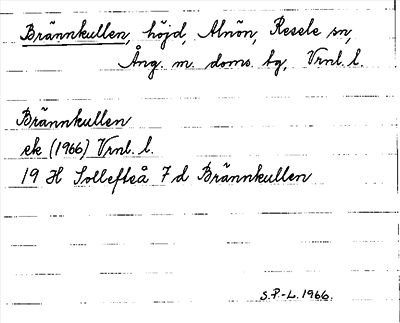 Brännkullen, höjd, Alnön, Resele sn,
Ång. m. doms. bg, Vrnl. l.
Brännkullen
ek (1966) Vrnl. l.
19 H Sollefteå 7 d Brännkullen
S.P.-L. 1966.